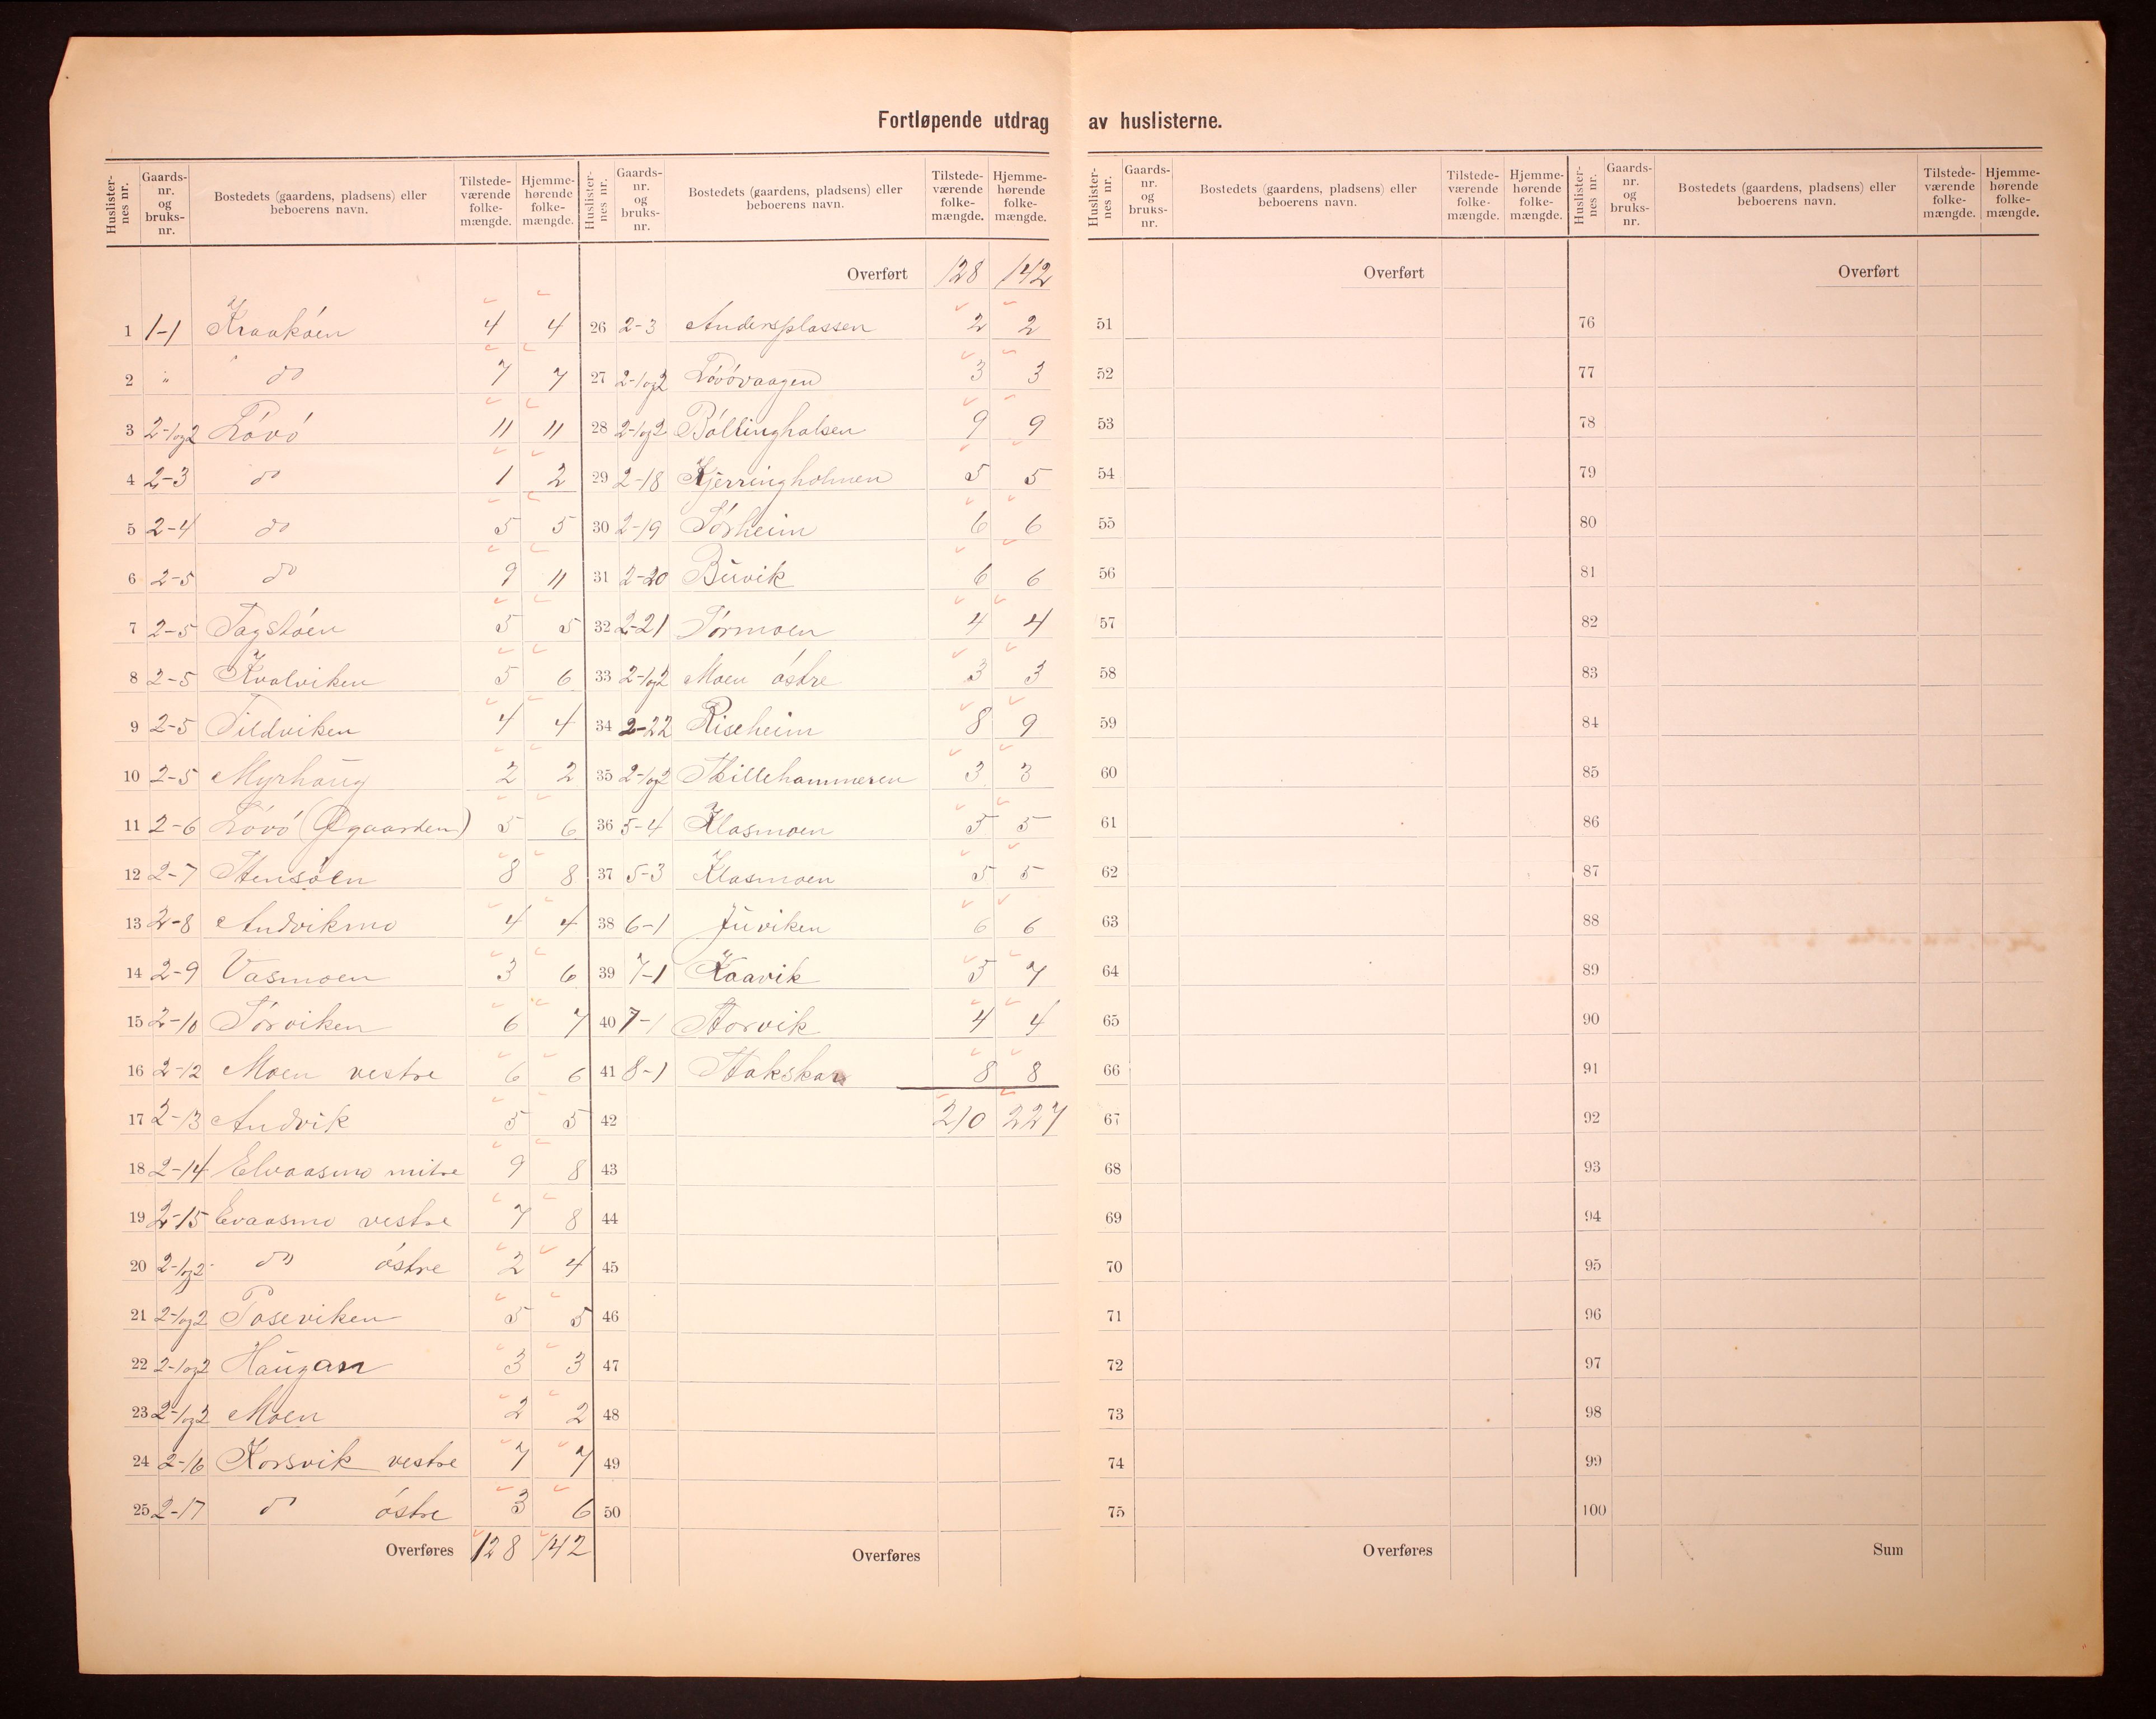 Fortløpende utdrag av huslisterne.
Huslisternes nr. Gaards-nr. og bruks-nr. Bostedets (gaardens, pladsens) eller beboerens navn. Tilstedeværende folkemængde. Hjemmehørende folkemængde.
1 1-1 Kraakøen 4 4
2 " do 7 7
3 2-1og2 Lóvó 11 11
4 2-3 do 1 2
5 2-4 do 5 5
6 2-5 do 9 11
7 2-5 5 5
8 2-5 Kvalviken 5 6
9 2-5 Tildviken 4 4
10 2-5 Myrhaug 2 2
11 2-6 Lóvó (Øgaarden) 5 6
12 2-7 Stensóen 8 8
13 2-8 Andvikmo 4 4
14 2-9 Vasmoen 3 6
15 2-10 Sórviken 6 7
16 2-12 Moen vestre 6 6
17 2-13 Andvik 5 5
18 2-14 Elvaasmo mitre 9 8
19 2-15 Evaasmo vestre 7 8
20 2-1og2 do óstre 2 4
21 2-1og2 Poseviken 5 5
22 2-1og2 Haugan 3 3
23 2-1og2 Moen 2 2
24 2-16 Korsvik vestre 7 7
25 2-17 do óstre 3 6
Overføres 128 142
Huslisternes nr. Gaards-nr. og bruks-nr. Bostedets (gaardens, pladsens) eller beboerens navn. Tilstedeværende folkemængde. Hjemmehørende folkemængde.
Overført 128 142
26 2-3 Andersplassen 2 2
27 2-1og2 Lóvóvaagen 3 3
28 2-1og2 Bóllinghalsen 9 9
29 2-18 Kjerringholmen 5 5
30 2-19 Sórheim 6 6
31 2-20 Buvik 6 6
32 2-21 Sórmoen 4 4
33 2-1og2 Moen óstre 3 3
34 2-22 Riseheim 8 9
35 2-1og2 Skillehammeren 3 3
36 5-4 Klasmoen 5 5
37 5-3 Klasmoen 5 5
38 6-1 Juviken 6 6
39 7-1 Kaavik 5 7
40 7-1 Storvik 4 4
41 8-1 Stokskar 8 8
42 210 227
43
44
45
46
47
48
49
50
Overføres
Huslisternes nr. Gaards-nr. og bruks-nr. Bostedets (gaardens, pladsens) eller beboerens navn. Tilstedeværende folkemængde. Hjemmehørende folkemængde.
Overført
51
52
53
54
55
56
57
58
59
60
61
62
63
64
65
66
67
68
69
70
71
72
73
74
75
Overføres
Huslisternes nr. Gaards-nr. og bruks-nr. Bostedets (gaardens, pladsens) eller beboerens navn. Tilstedeværende folkemængde. Hjemmehørende folkemængde.
Overført
76
77
78
79
80
81
82
83
84
85
86
87
88
89
90
91
92
93
94
95
96
97
98
99
100
Sum